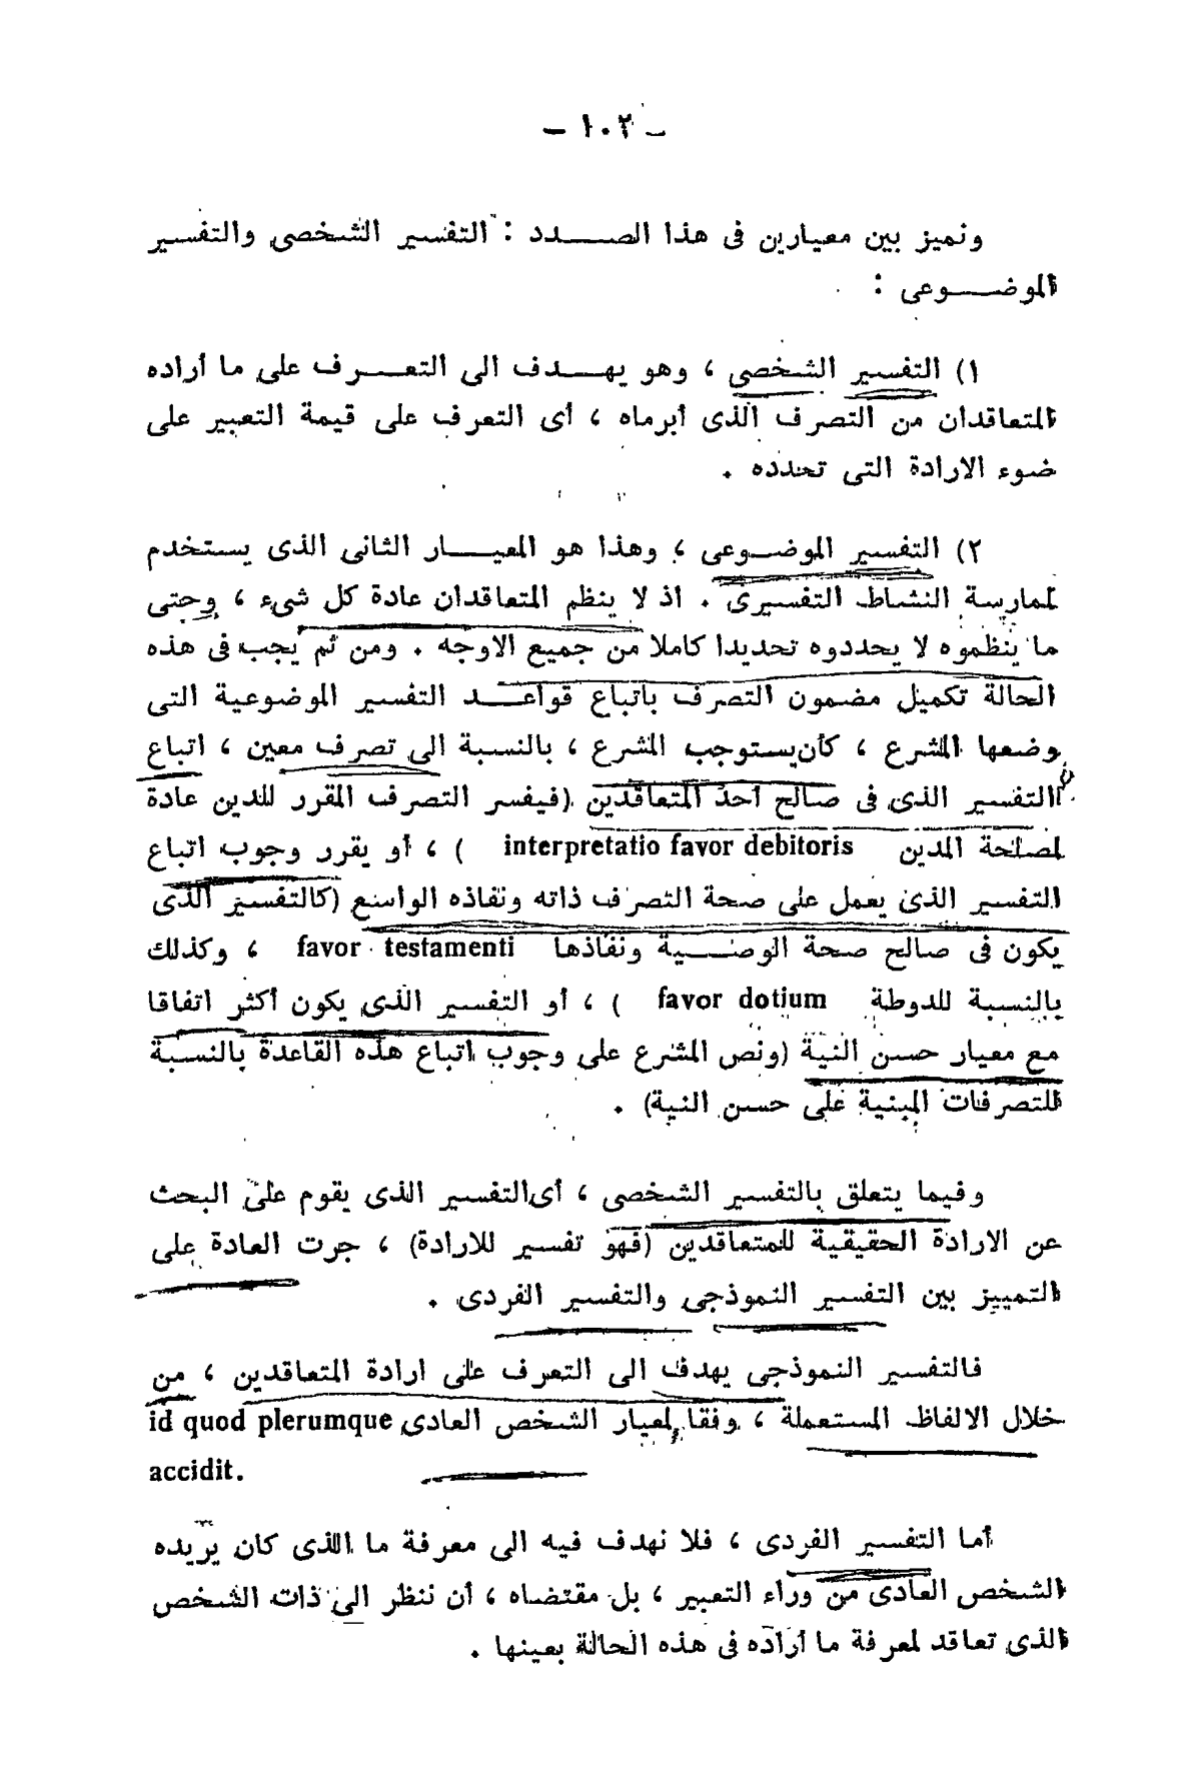 - ١٠٢ -
ونميز بين معيارين فى هذا الصـــدد : التفسير الشخصى والتفسير
الموضـــوعى :
١) التفسير الشخصى ، وهو يهـــدف الى التعـــرف على ما أراده
المتعاقدان من التصرف الذى أبرماه ، أى التعرف على قيمة التعبير على
ضوء الارادة التى تحدده .
٢) التفسير الموضـوعى ، وهذا هو المعيـــار الثانى الذى يستخدم
لممارسة النشاط التفسيرى . اذ لا ينظم المتعاقدان عادة كل شىء ، وحتى
ما ينظموه لا يحددوه تحديدا كاملا من جميع الاوجه . ومن ثم يجب فى هذه
الحالة تكميل مضمون التصرف باتباع قواعـــد التفسير الموضوعية التى
وضعها المشرع ، كأن يستوجب المشرع ، بالنسبة الى تصرف معين ، اتباع
التفسير الذى فى صالح أحد المتعاقدين (فيفسر التصرف المقرر للدين عادة
لمصلحة المدين interpretatio favor debitoris ) ، أو يقرر وجوب اتباع
التفسير الذى يعمل على صحة التصرف ذاته ونفاذه الواسع (كالتفسير الذى
يكون فى صالح صحة الوصـــية ونفاذها favor testamenti ، وكذلك
بالنسبة للدوطة favor dotium ) ، أو التفسير الذى يكون أكثر اتفاقا
مع معيار حسن النية (ونص المشرع على وجوب اتباع هذه القاعدة بالنسبة
للتصرفات المبنية على حسن النية) .
وفيما يتعلق بالتفسير الشخصى ، أى التفسير الذى يقوم على البحث
عن الارادة الحقيقية للمتعاقدين (فهو تفسير للارادة) ، جرت العادة على
التمييز بين التفسير النموذجى والتفسير الفردى .
فالتفسير النموذجى يهدف الى التعرف على ارادة المتعاقدين ، من
خلال الالفاظ المستعملة ، وفقا لمعيار الشخص العادى id quod plerumque
accidit.
أما التفسير الفردى ، فلا نهدف فيه الى معرفة ما الذى كان يريده
الشخص العادى من وراء التعبير ، بل مقتضاه ، أن ننظر الى ذات الشخص
الذى تعاقد لمعرفة ما أراده فى هذه الحالة بعينها .